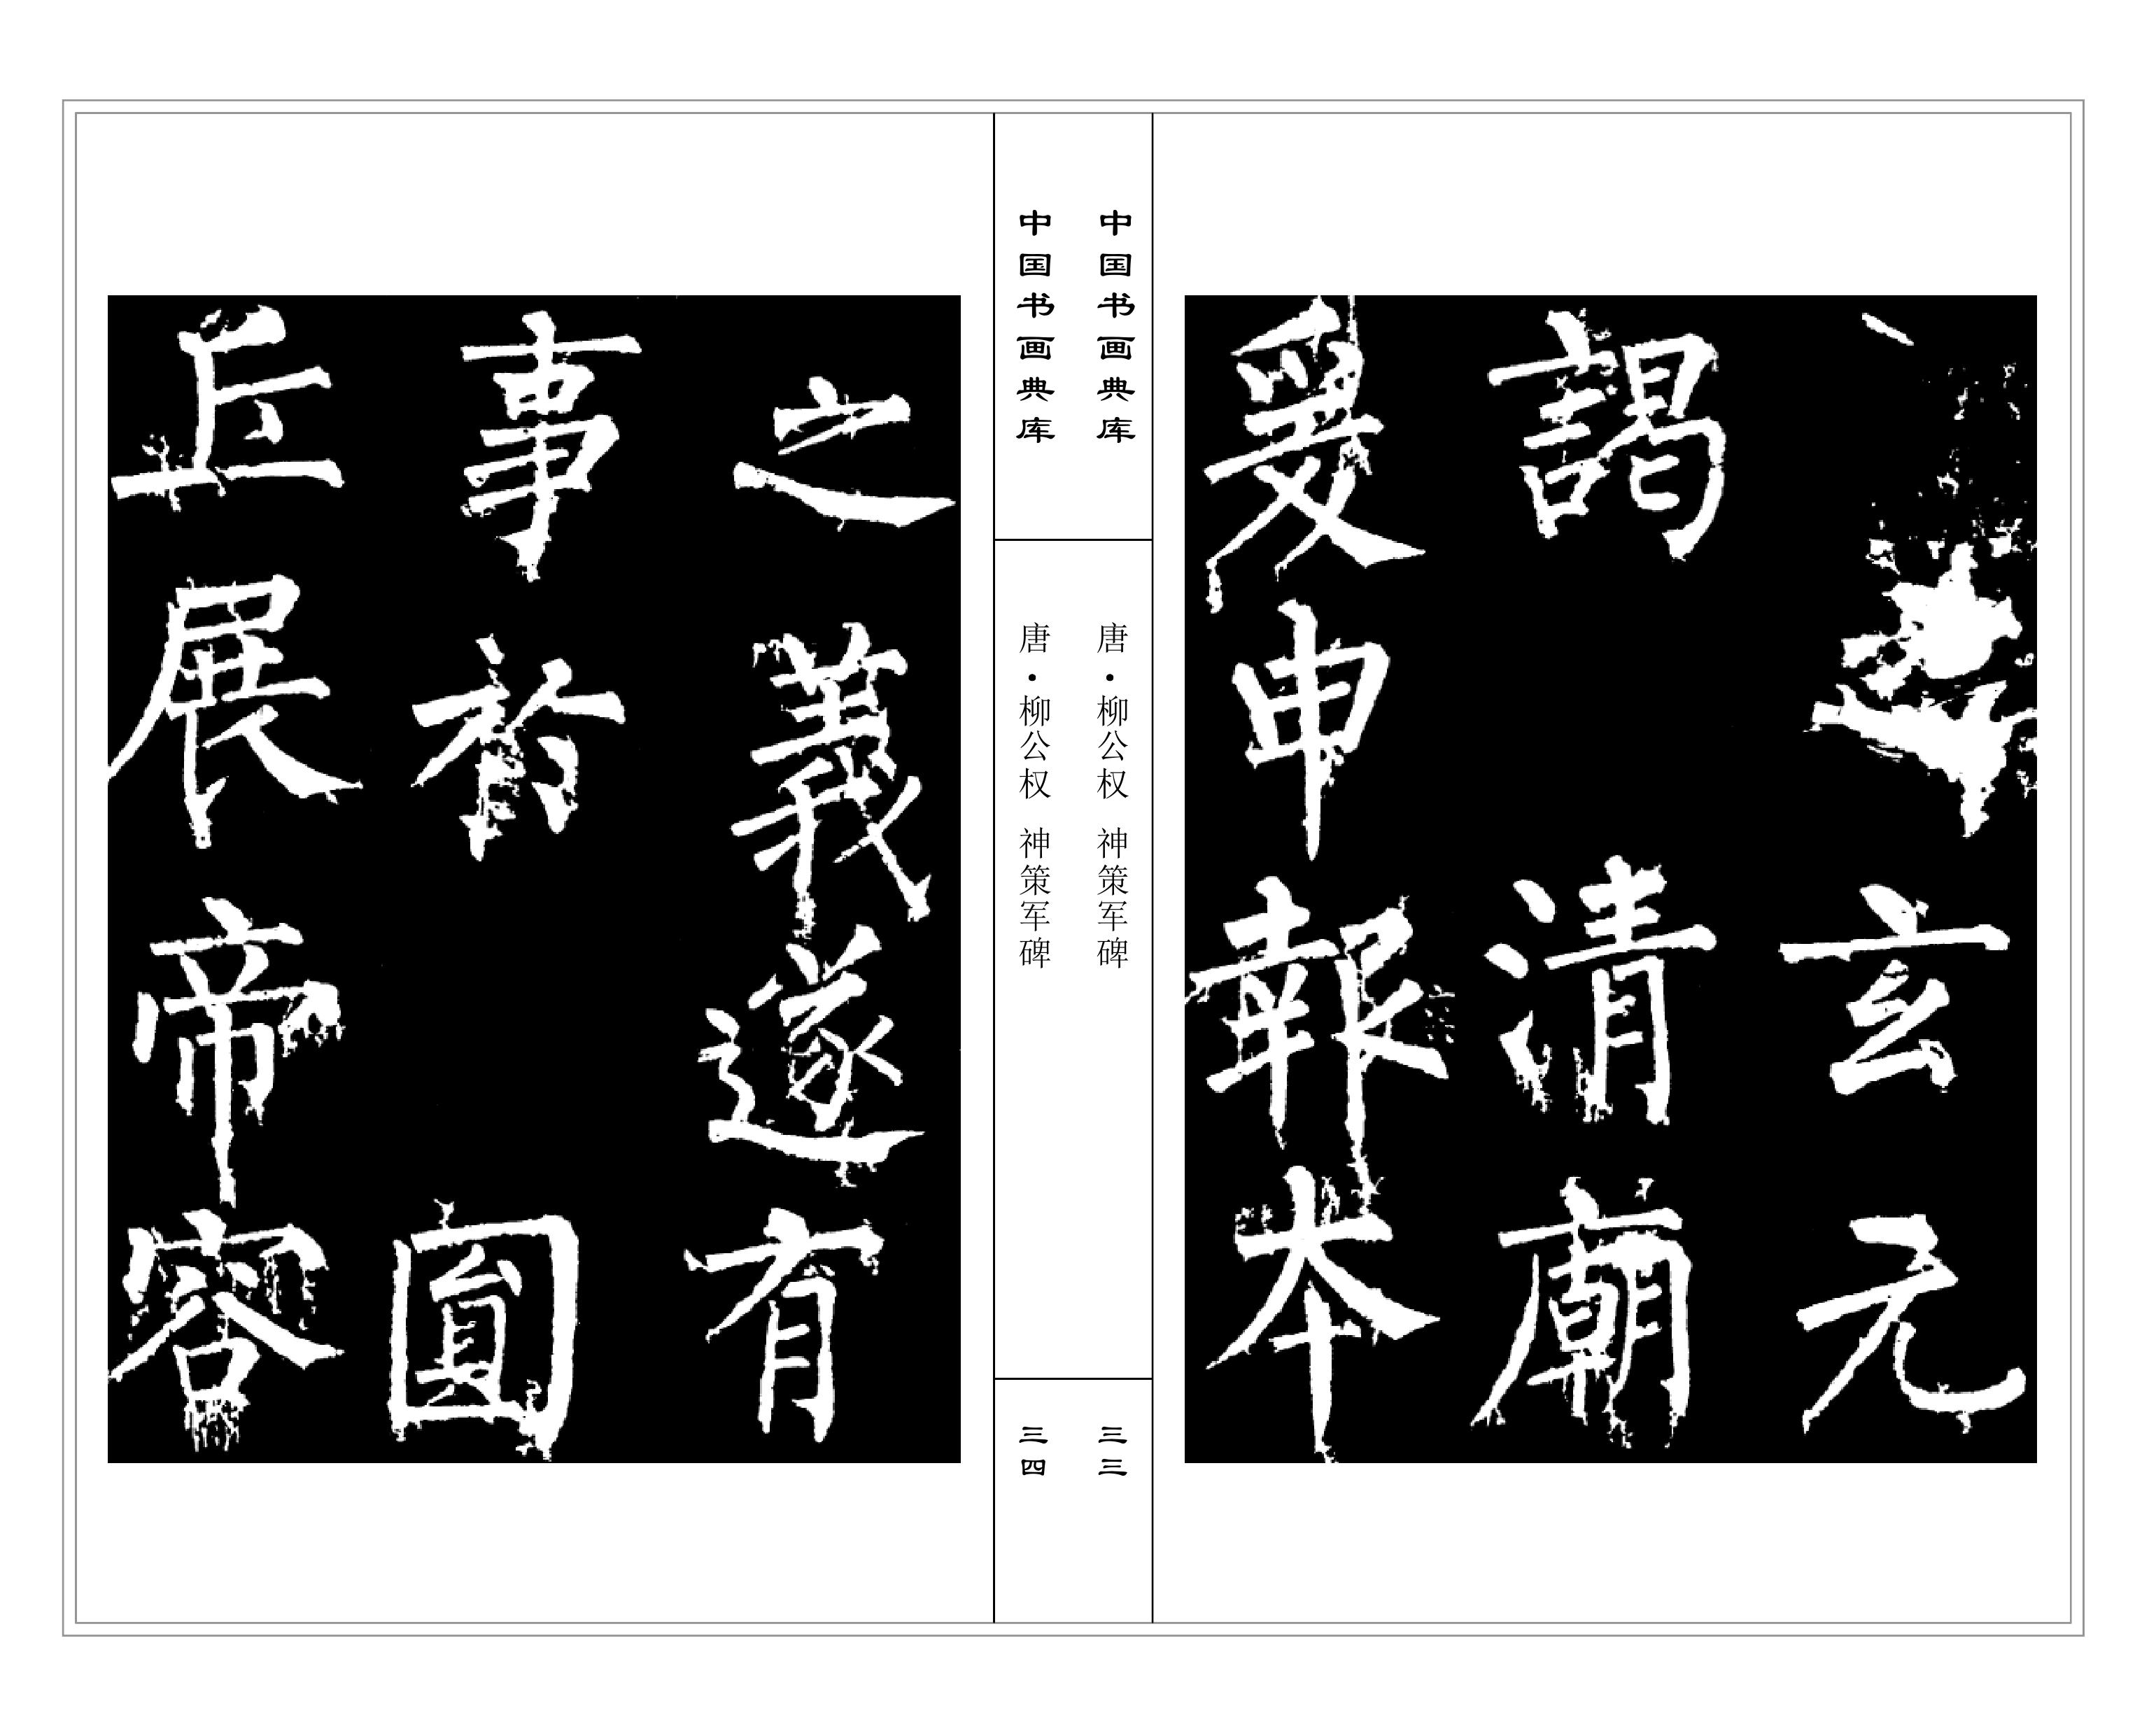 玄元
謁清廟
爰申報本
中国书画典库
唐·柳公权 神策军碑
三三
中国书画典库
唐·柳公权 神策军碑
三四
之義遂有
事於圓
丘展帝容